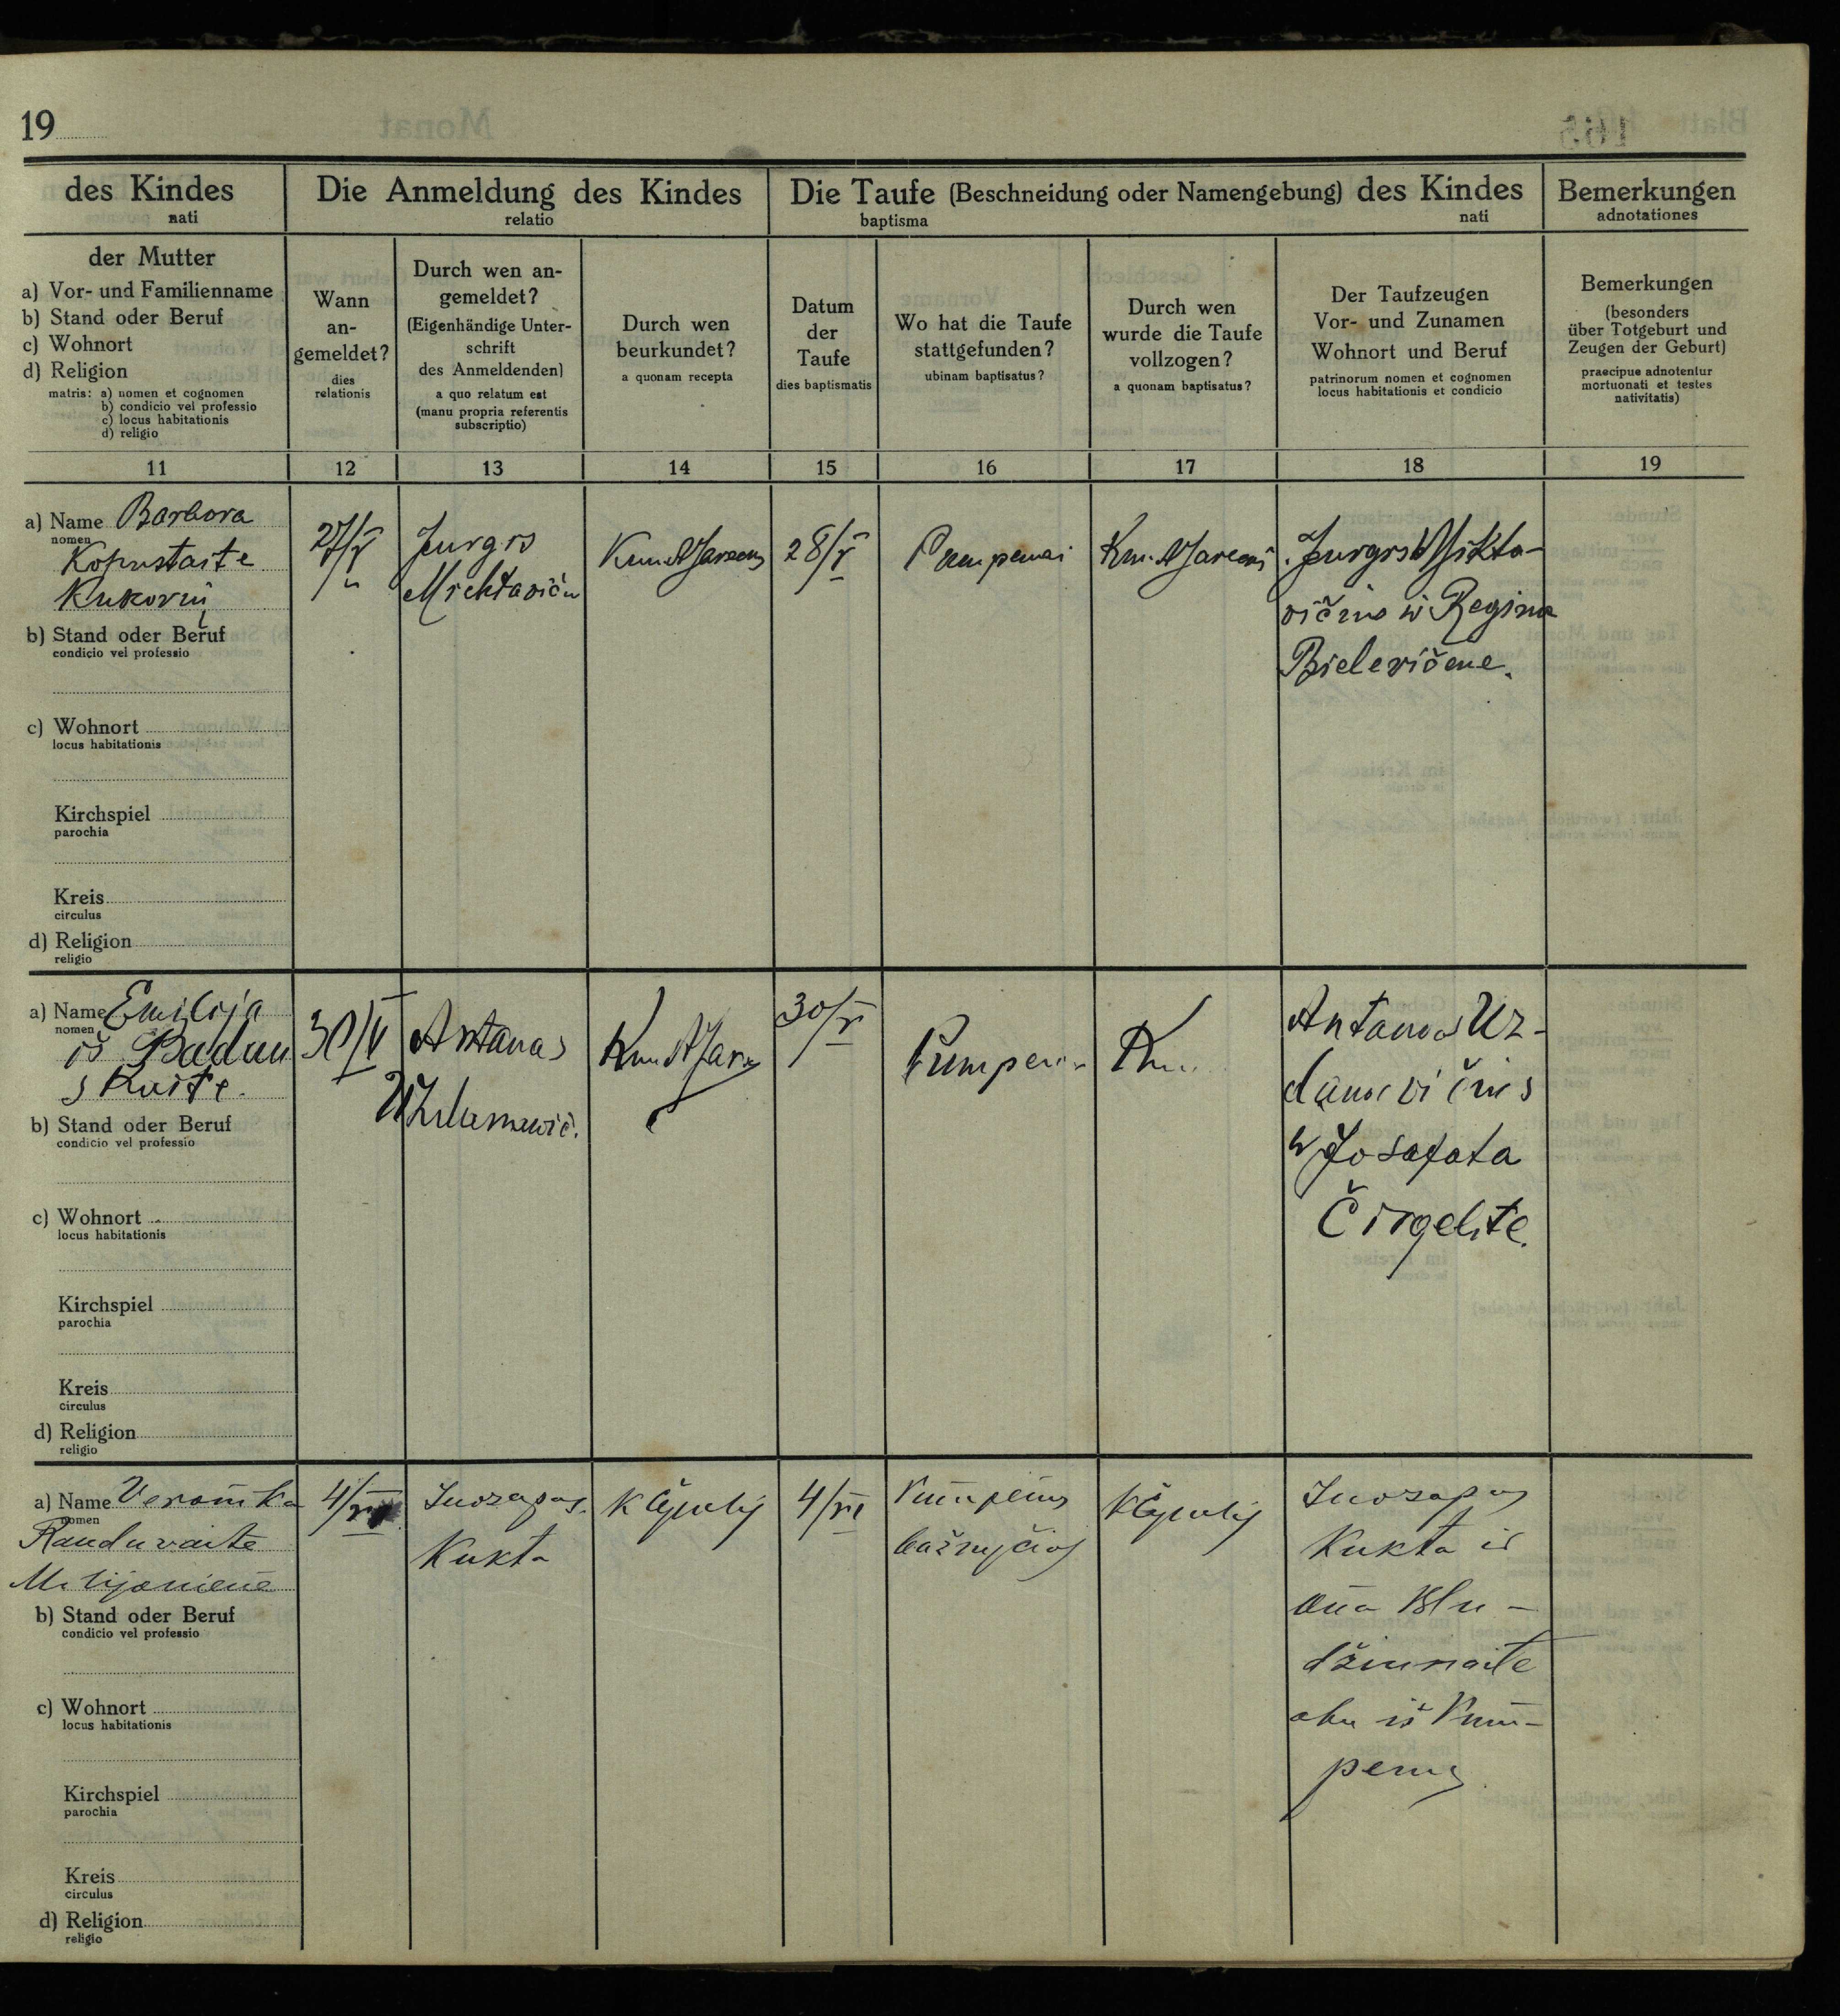 19
des Kindes
nati
Die Anmeldung des Kindes
relatio
Die Taufe (Beschneidung oder Namengebung) des Kindes
baptisma nati
Bemerkungen
adnotationes
der Mutter
a) Vor- und Familienname
b) Stand oder Beruf
c) Wohnort
d) Religion
matris: a) nomen et cognomen
b) condicio vel professio
c) locus habitationis
d) religio
Wann
an-
gemeldet?
dies
relationis
Durch wen an-
gemeldet?
(Eigenhändige Unter-
schrift
des Anmeldenden)
a quo relatum est
(manu propria referentis
subscriptio)
Durch wen
beurkundet?
a quonam recepta
Datum
der
Taufe
dies baptismatis
Wo hat die Taufe
stattgefunden?
ubinam baptisatus?
Durch wen
wurde die Taufe
vollzogen?
a quonam baptisatus?
Der Taufzeugen
Vor- und Zunamen
Wohnort und Beruf
patrinorum nomen et cognomen
locus habitationis et condicio
Bemerkungen
(besonders
über Totgeburt und
Zeugen der Geburt)
praecipue adnotentur
mortuonati et testes
nativitatis)
11 12 13 14 15 16 17 18 19
a) Name Barbora
nomen
Kopustaite
b) Stand oder Beruf
condicio vel professio
c) Wohnort
locus habitationis
Kirchspiel
parochia
Kreis
circulus
d) Religion
religio
27/V
Jurgis
28/V
Pumpenai
Jurgis Mikta-
vičius ir Regina
Bielevičene.
a) Name Emilija
nomen
iš Badun
skaite.
b) Stand oder Beruf
condicio vel professio
c) Wohnort
locus habitationis
Kirchspiel
parochia
Kreis
circulus
d) Religion
religio
30/V
Antanas
30/V
Kun.
Antanas Uz-
danavičius
ir Josafata
Čirgelite.
a) Name Veronika
nomen
Randuvaite
b) Stand oder Beruf
condicio vel professio
c) Wohnort
locus habitationis
Kirchspiel
parochia
Kreis
circulus
d) Religion
religio
4/VI
Juozapas
Kukta
4/VI
bažnyčioj
Juozapas
Kukta ir
Ona Blu-
džiunaite
abu iš Pum-
penų